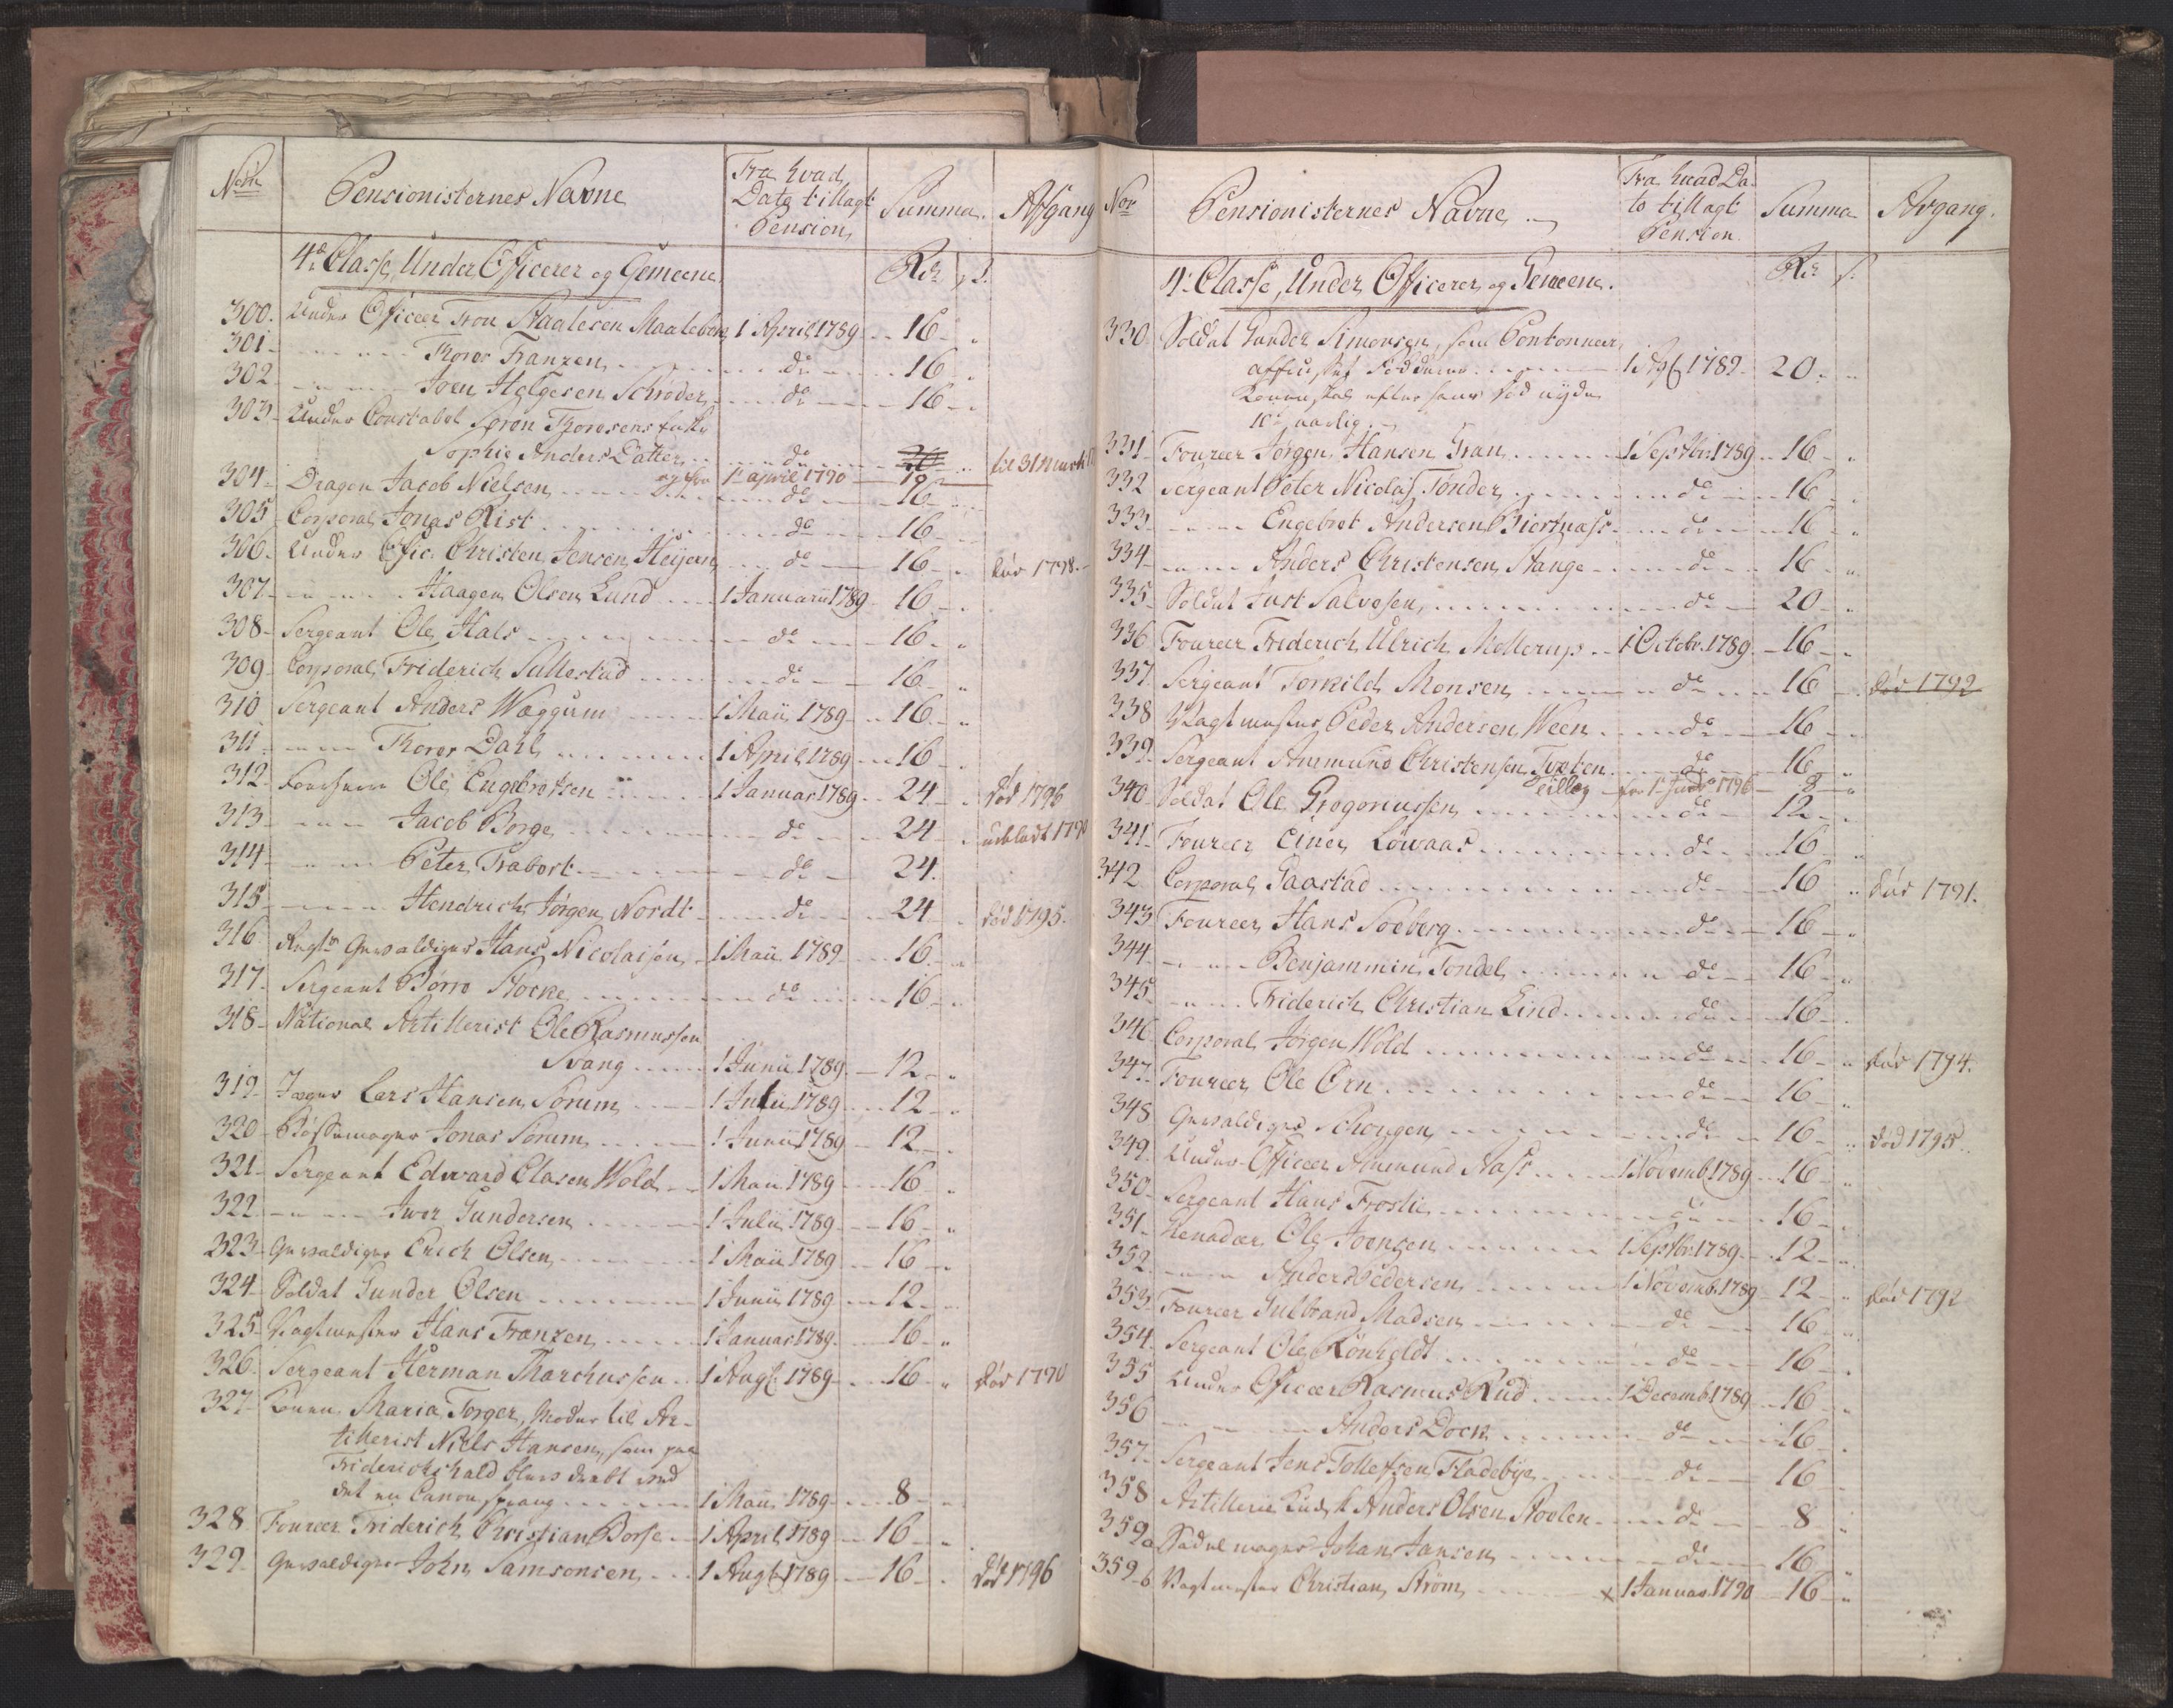 Nom
Pensionisternes Navne
Fra hvad
Dato tillagt
Pension
Summa
Afgang
4de Classe, Under Officerer og Gemeene
Rdr s.
300. Under Officeer Tron Staalesen 1 April 1789 16
301 Thorer Franzen do 16
302 Joen Helgesen Schrøder do 16
303 Under Constabel Søren Thoresens Enke
Sophie Anders Datter do 20 til 31 Marts
og fra 1te april 1790
304 Dragon Jacob Nielsen do 16
305 Corporal Jonas Rist do 16
306 Under Offic: Christen Jensen do 16 død 1798
307 Haagen Olsen Lund 1 Januarii 1789 16
308 Sergeant Ole Hals do 16
309 Corporal Friderich Sallestad do 16
310 Sergeant Anders Waggum 1 Maii 1789 16
311 Thorer Dahl 1 April 1789 16
312 Ole Engebretsen 1 Januar 1789 24 død 1796
313 Jacob Borge do 24 udeladt 1790
314 Peter Trabort do 24
315 Hendrich Jørgen Nordt do 24 død 1795
316 Regts Gevaldiger Hans Nicolaisen 1 Maii 1789 16
317 Sergeant Børre Stocke do 16
318 National Artillerist Ole Rasmussen
Svang 1 Junii 1789 12
319 Jæger Lars Hansen Sørum 1 Julii 1789 12
320 Bøssemager Jonas Sørum 1 Junii 1789 12
321 Sergeant Edvard Clasen Wold 1 Maii 1789 16
322 Iwer Gundersen 1 Julii 1789 16
323 Gevaldiger Erich Olsen 1 Maii 1789 16
324 Soldat Gunder Olsen 1 Junii 1789 12
325 Vagtmester Hans Franzen 1 Januar 1789 16
326 Sergeant Herman Marchussen 1 Augt 1789 16 død 1790
327 Konen Maria Torger, Moder til Ar-
tillerist Niels Hansen, som paa
Friderichshald blev dræbt ved
det en Canon sprang 1 Maii 1789 8
328 Foureer Friderich Christian Borse 1 April 1789 16
329 Gevaldiger John Samsonsen 1 Augt 1789 16 død 1796
Nor
Pensionisternes Navne
Fra hvad Da-
to tillagt
Pension
Summa
Afgang.
4de Classe, Under Officerer og Gemeene.
Rdr s.
330 Soldat Gunder Simonsen, som
1 Augt 1789 20
Konen skal efter hans Død nyde
10 rd aarlig.
331 Foureer Jørgen Hansen Gran 1 Septbr 1789 16
332 Sergeant Peter Nicolaj Tønder do 16
333 Engebret Andersen do 16
334 Anders Christensen Stange do 16
335 Soldat Just Salvesen do 20
336 Foureer Friderich Ulrich Mollerup 1 Octobr. 1789 16
337 Sergeant Torkild Monsen do 16 død 1792
338 Vagtmester Peder Andersen Ween do 16
339 Sergeant Ammund Christensen Toxten do 16
Tillæg fra 1te 1796 8
340 Soldat Ole Gregoriussen do 12
341 Foureer Einer Løwaas do 16
342 Corporal Gaastad do 16 død 1791.
343 Foureer Hans Soeberg do 16
344 Benjammin Tondel do 16
345 Friderich Christian Lind do 16
346 Corporal Jørgen Wold do 16 død 1794.
347 Foureer Ole Ørn do 16
348 Gevaldiger Schougen do 16 død 1795
349 Under Officeer Ammund Aass 1 Novemb 1789 16
350 Sergeant Hans Frostie do 16
351 Grenadeer Ole Joensen 1 Septbr 1789 12
352 Anders Pedersen 1 Novemb 1789 12 død 1792
353 Foureer Gulbrand Madsen do 16
354 Sergeant Ole Rønholdt do 16
355 Under Officeer Rasmus Rud 1 Decemb 1789 16
356 Anders Dock do 16
357 Sergeant Jens Tollefsen Fladebye do 16
358 Artillerie Kudsk Anders Olsen Stoelen do 8
359a Sadelmager Johan Jansen do 16
359b Vagtmester Christian Strøm x 1 Januar 1790 16